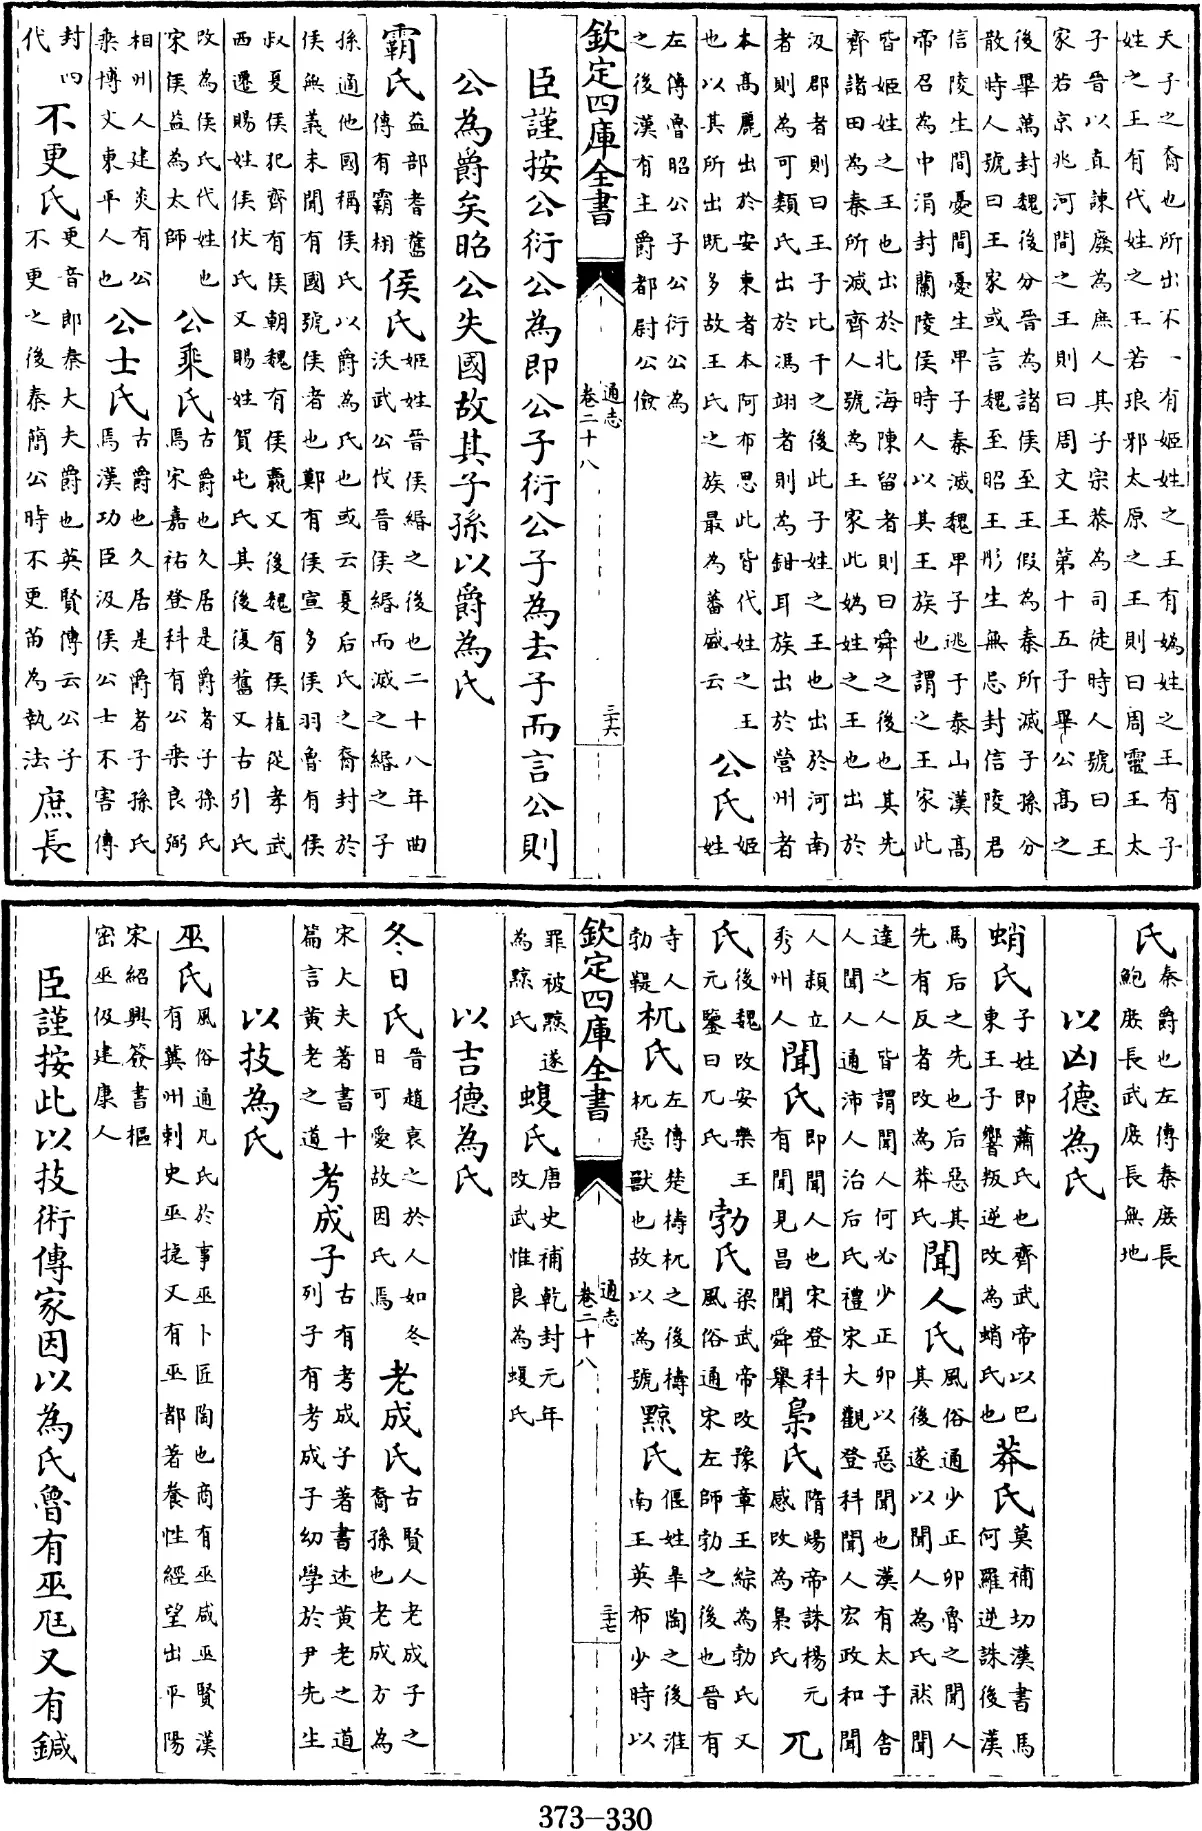 天子之裔也所出不一有姬姓之王有媯姓之王有子
姓之王有代姓之王若琅邪太原之王則曰周靈王太
子晉以直諫廢為庶人其子宗恭為司徒時人號曰王
家若京兆河間之王則曰周文王第十五子畢公高之
後畢萬封魏後分晉為諸侯至王假為秦所滅子孫分
散時人號曰王家或言魏至昭王彤生無忌封信陵君
信陵生間憂間憂生卑子秦滅魏卑子逃于泰山漢高
帝召為中涓封蘭陵侯時人以其王族也謂之王家此
皆姬姓之王也出於北海陳留者則曰舜之後也其先
齊諸田為秦所滅齊人號為王家此媯姓之王也出於
汲郡者則曰王子比干之後此子姓之王也出於河南
者則為可頻氏出於馮翊者則為鉗耳族出於營州者
本高麗出於安東者本阿布思此皆代姓之王
也以其所出既多故王氏之族最為蕃盛云 公氏 姬姓
左傳魯昭公子公衍公為
之後漢有主爵都尉公儉
欽定四庫全書 通志 卷二十八 三十六
臣謹按公衍公為即公子衍公子為去子而言公則
公為爵矣昭公失國故其子孫以爵為氏
霸氏 益部耆舊傳有霸栩 侯氏 姬姓晉侯緡之後也二十八年曲沃武公伐晉侯緡而滅之緡之子
孫適他國稱侯氏以爵為氏也或云夏后氏之裔封於
侯無義未聞有國號侯者也鄭有侯宣多侯羽魯有侯
叔夏侯犯齊有侯朝魏有侯嬴又後魏有侯植從孝武
西遷賜姓侯伏氏又賜姓賀屯氏其後復舊又古引氏
改為侯氏代姓也宋侯益為太師 公乘氏 古爵也久居是爵者子孫氏焉宋嘉祐登科有公乘良弼
相州人建炎有公乘博文東平人也 公士氏 古爵也久居是爵者子孫氏焉漢功臣汲侯公士不害傳
封四代 不更氏 更音即秦大夫爵也英賢傳云公子不更之後秦簡公時不更苗為執法 庶長
氏 秦爵也左傳秦庶長鮑庶長武庶長無地
以凶德為氏
蛸氏 子姓即蕭氏也齊武帝以巴東王子響叛逆改為蛸氏也 莽氏 莫補切漢書馬何羅逆誅後漢
馬后之先也后惡其先有反者改為莽氏 聞人氏 風俗通少正卯魯之聞人其後遂以聞人為氏然聞
達之人皆謂聞人何必少正卯以惡聞也漢有太子舍
人聞人通沛人治后氏禮宋大觀登科聞人宏政和聞
人頴立秀州人 聞氏 即聞人也宋登科有聞見昌聞舜舉 梟氏 隋煬帝誅楊元感改為梟氏 兀
氏 後魏改安樂王元鑒曰兀氏 勃氏 梁武帝改豫章王綜為勃氏又風俗通宋左師勃之後也晉有
寺人勃鞮 杌氏 左傳楚檮杌之後檮杌惡獸也故以為號 黥氏 偃姓臯陶之後淮南王英布少時以
欽定四庫全書 通志 卷二十八 三十七
罪被黥遂為黥氏 蝮氏 唐史補乾封元年改武惟良為蝮氏
以吉德為氏
冬日氏 晉趙衰之於人如冬日可愛故因氏焉 老成氏 古賢人老成子之裔孫也老成方為
宋大夫著書十篇言黃老之道 考成子 古有考成子著書述黃老之道列子有考成子幼學於尹先生
以技為氏
巫氏 風俗通凡氏於事巫卜匠陶也商有巫咸巫賢漢有冀州刺史巫捷又有巫都著養性經望出平陽
宋紹興簽書樞密巫伋建康人
臣謹按此以技術傳家因以為氏魯有巫尫又有鍼
373-330